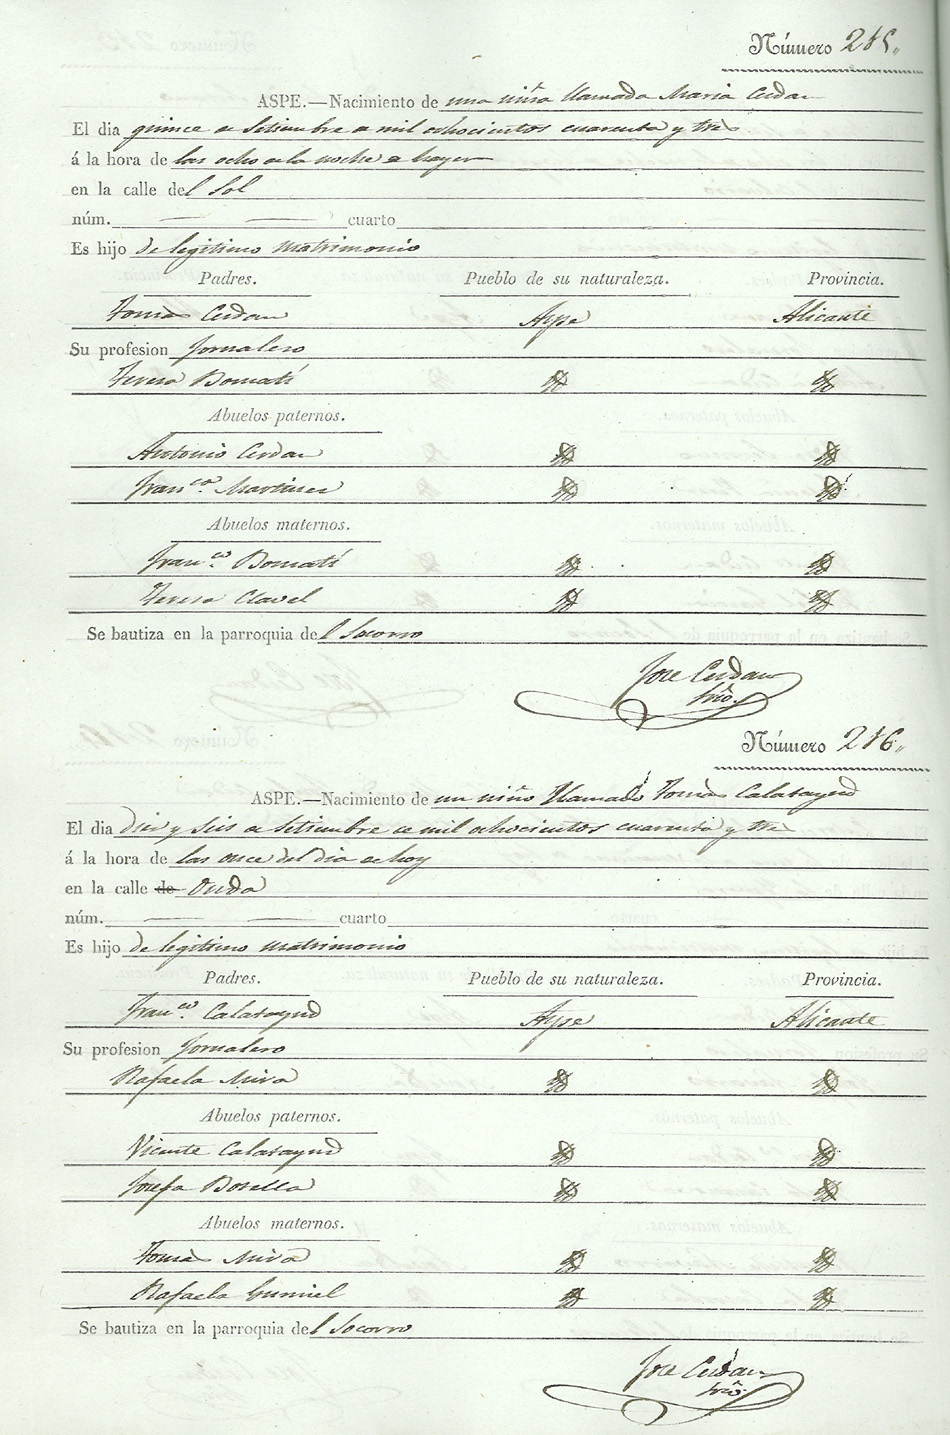 Número 215.
ASPE.—Nacimiento de una niña llamada Maria Cerdan
El dia quince de Setiembre de mil ochocientos cuarenta y tres
á la hora de las ocho de la noche de hayer
en la calle del Sol
núm. cuarto
Es hijo de legitimo matrimonio
Padres. Pueblo de su naturaleza. Provincia.
Tomás Cerdan Aspe Alicante
Su profesion Jornalero
Teresa Bomatí
Abuelos paternos.
Antonio Cerdan
Fran.ca Martinez
Abuelos maternos.
Fran.co Bomatí
Teresa Clavel
Se bautiza en la parroquia del Socorro
Jose Cerdan
Srio.
Número 216.
ASPE.—Nacimiento de un niño llamado Tomás Calatayud
El dia diez y seis de Setiembre de mil ochocientos cuarenta y tres
á la hora de las once del dia de hoy
en la calle de Onda
núm. cuarto
Es hijo de legitimo matrimonio
Padres. Pueblo de su naturaleza. Provincia.
Fran.co Calatayud Aspe Alicante
Su profesion Jornalero
Rafaela Mira
Abuelos paternos.
Vicente Calatayud
Josefa Botella
Abuelos maternos.
Tomás Mira
Rafaela Gumiel
Se bautiza en la parroquia del Socorro
Jose Cerdan
Srio.